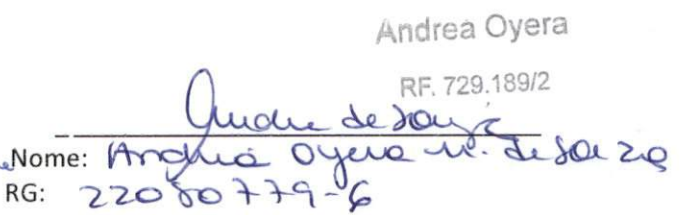 Andrea Oyera
RF. 729.189/2
de Souza
Nome: Andrea Oyera N. de Souza
RG: 22080779-6